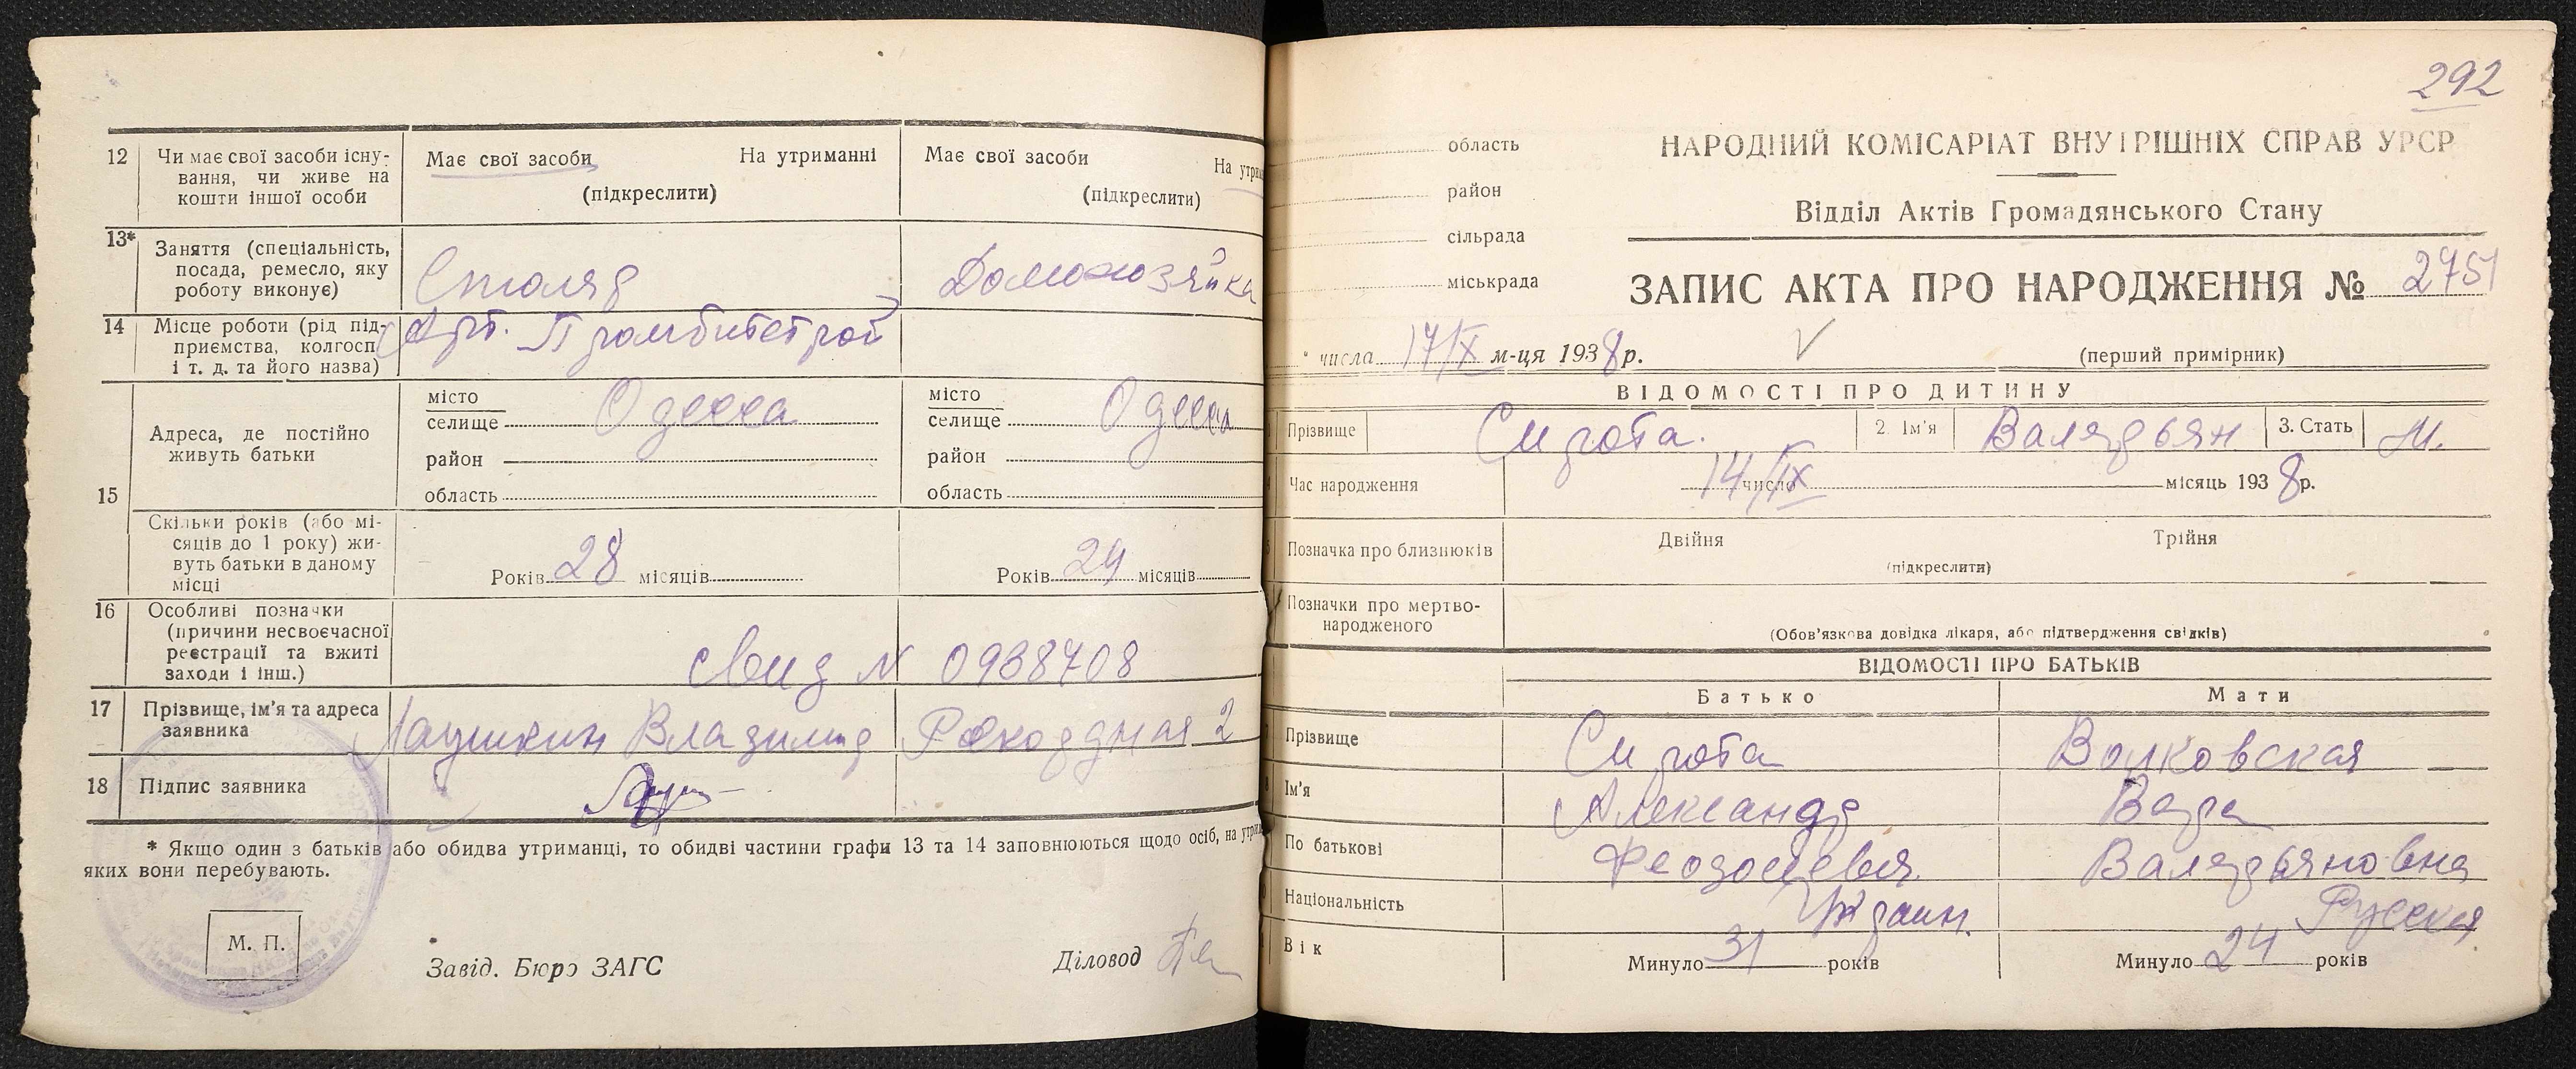 12 Чи має свої засоби існу-
вання, чи живе на
кошти іншої особи
Має свої засоби На утриманні
(підкреслити)
Має свої засоби На утри
(підкреслити)
13* Заняття (спеціальність,
посада, ремесло, яку
роботу виконує)
Столяр
Домохозяйка
14 Місце роботи (рід під-
приємства, колгосп
і т. д. та його назва)
Арт. Промбитстрой
15 Адреса, де постійно
живуть батьки
місто
селище Одесса
район
область
місто
селище Одесса
район
область
Скільки років (або мі-
сяців до 1 року) жи-
вуть батьки в даному
місці
Років 28 місяців
Років 24 місяців
16 Особливі позначки
(причини несвоєчасної
реєстрації та вжиті
заходи і інш.)
Свид N 0938708
17 Прізвище, ім'я та адреса
заявника
Владимир 2
18 Підпис заявника
* Якщо один з батьків або обидва утриманці, то обидві частини графи 13 та 14 заповнюються щодо осіб, на утри
яких вони перебувають.
М. П.
Завід. Бюро ЗАГС
Діловод
292
область
район
сільрада
міськрада
НАРОДНИЙ КОМІСАРІАТ ВНУТРІШНІХ СПРАВ УРСР
Відділ Актів Громадянського Стану
ЗАПИС АКТА ПРО НАРОДЖЕННЯ № 2751
" числа 17/IX м-ця 1938 р.
(перший примірник)
ВІДОМОСТІ ПРО ДИТИНУ
Прізвище Сирота. 2. Ім'я Валерьян 3. Стать М.
Час народження 14/IX число місяць 1938 р.
Позначка про близнюків Двійня Трійня
(підкреслити)
Позначки про мертво-
народженого
(Обов'язкова довідка лікаря, або підтвердження свідків)
ВІДОМОСТІ ПРО БАТЬКІВ
Батько Мати
Прізвище Сирота Волковская
Ім'я Александр Вера
По батькові Феодосиевич Валерьяновна
Національність Украин. Русская
Вік Минуло 31 років Минуло 24 років